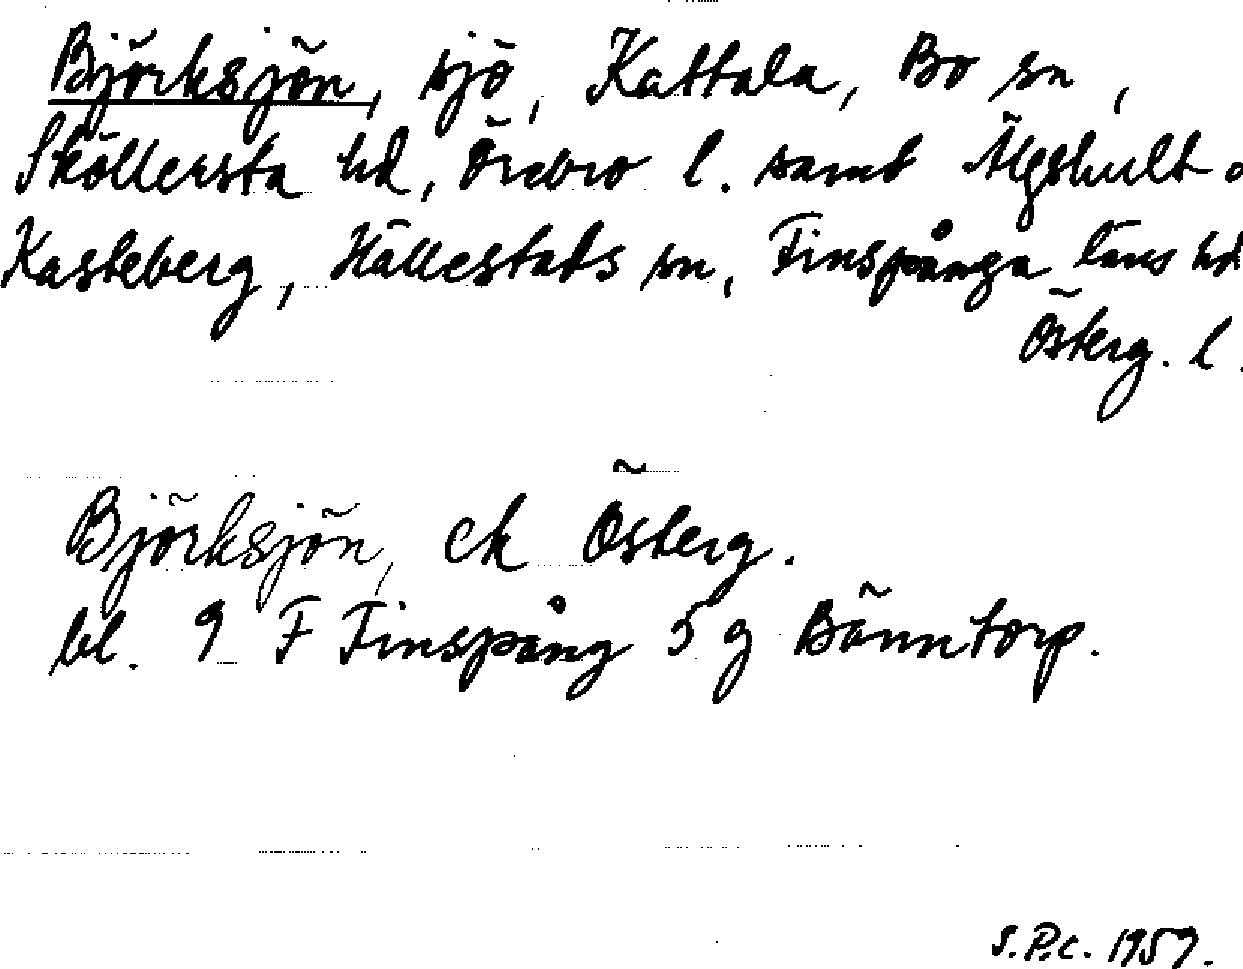 Björksjön, sjö, Kattala, Bo sn,
Sköllersta hd, Örebro l. samt Älgshult o
Kasteberg, Hällestads sn, Finspånga läns hd
Österg. l.
Björksjön, ek Österg.
bl. 9 F Finspång 5 g Bänntorp.
S.P.C. 1959.